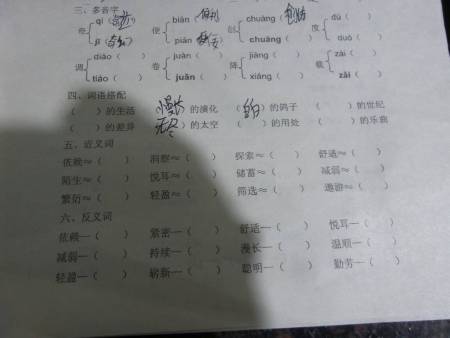 三、多音字
奇{ qí（ ） 便{ biàn（便利） 创{ chuāng（创伤） 度{ dù（ ）
jī（ ） pián（便宜） chuàng（ ） duó（ ）
调{ diào（ ） 卷{ juàn（ ） 降{ jiàng（ ） 载{ zài（ ）
tiáo（ ） juǎn（ ） xiáng（ ） zǎi（ ）
四、词语搭配
（ ）的生活 （漫长）的演化 （ ）的鸽子 （ ）的世纪
（ ）的差异 （无尽）的太空 （ ）的用处 （ ）的乐曲
五、近义词
依赖≈（ ） 洞察≈（ ） 探索≈（ ） 舒适≈（ ）
陌生≈（ ） 悦耳≈（ ） 储蓄≈（ ） 减弱≈（ ）
繁衍≈（ ） 轻盈≈（ ） 筛选≈（ ） 遨游≈（ ）
六、反义词
依赖—（ ） 紧密—（ ） 舒适—（ ） 悦耳—（ ）
减弱—（ ） 持续—（ ） 漫长—（ ） 温顺—（ ）
轻盈—（ ） 崭新—（ ） 聪明—（ ） 勤劳—（ ）